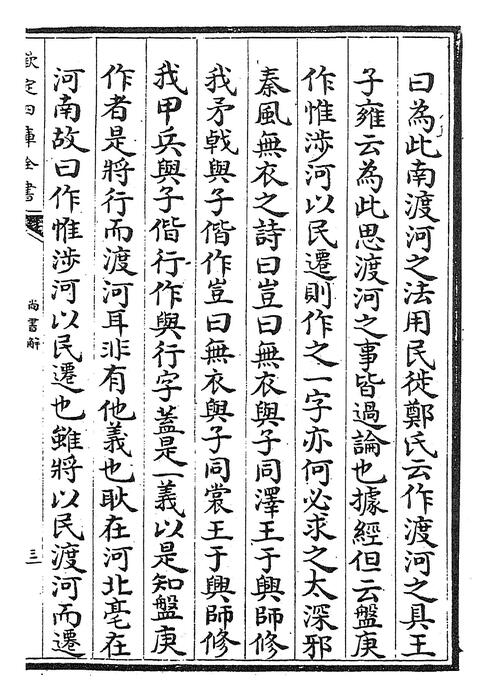 曰為此南渡河之法用民徙鄭氏云作渡河之具王
子雍云為此思渡河之事皆過論也據經但云盤庚
作惟涉河以民遷則作之一字亦何必求之太深邪
秦風無衣之詩曰豈曰無衣與子同澤王于興師修
我矛戟與子偕作豈曰無衣與子同裳王于興師修
我甲兵與子偕行作與行字蓋是一義以是知盤庚
作者是將行而渡河耳非有他義也耿在河北亳在
河南故曰作惟涉河以民遷也雖將以民渡河而遷
欽定四庫全書
尚書解
三